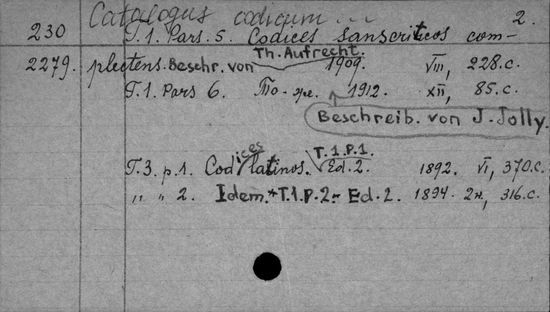 Catalogus codicum... 2.
230 T.1. Pars. 5. Codices sanscriticos com-
2279. plectens. Beschr. von Th. Aufrecht. 1909. VIII, 228.c.
T.1. Pars 6. То-же. 1912. XII, 85.c.
Beschreib. von J. Jolly.
T.3. p.1. Codices latinos. T.1.P.1. Ed. 2. 1892. VI, 370.c.
" " 2. Idem. * T.1.P.2 - Ed. 2. 1894. 2н, 316.c.